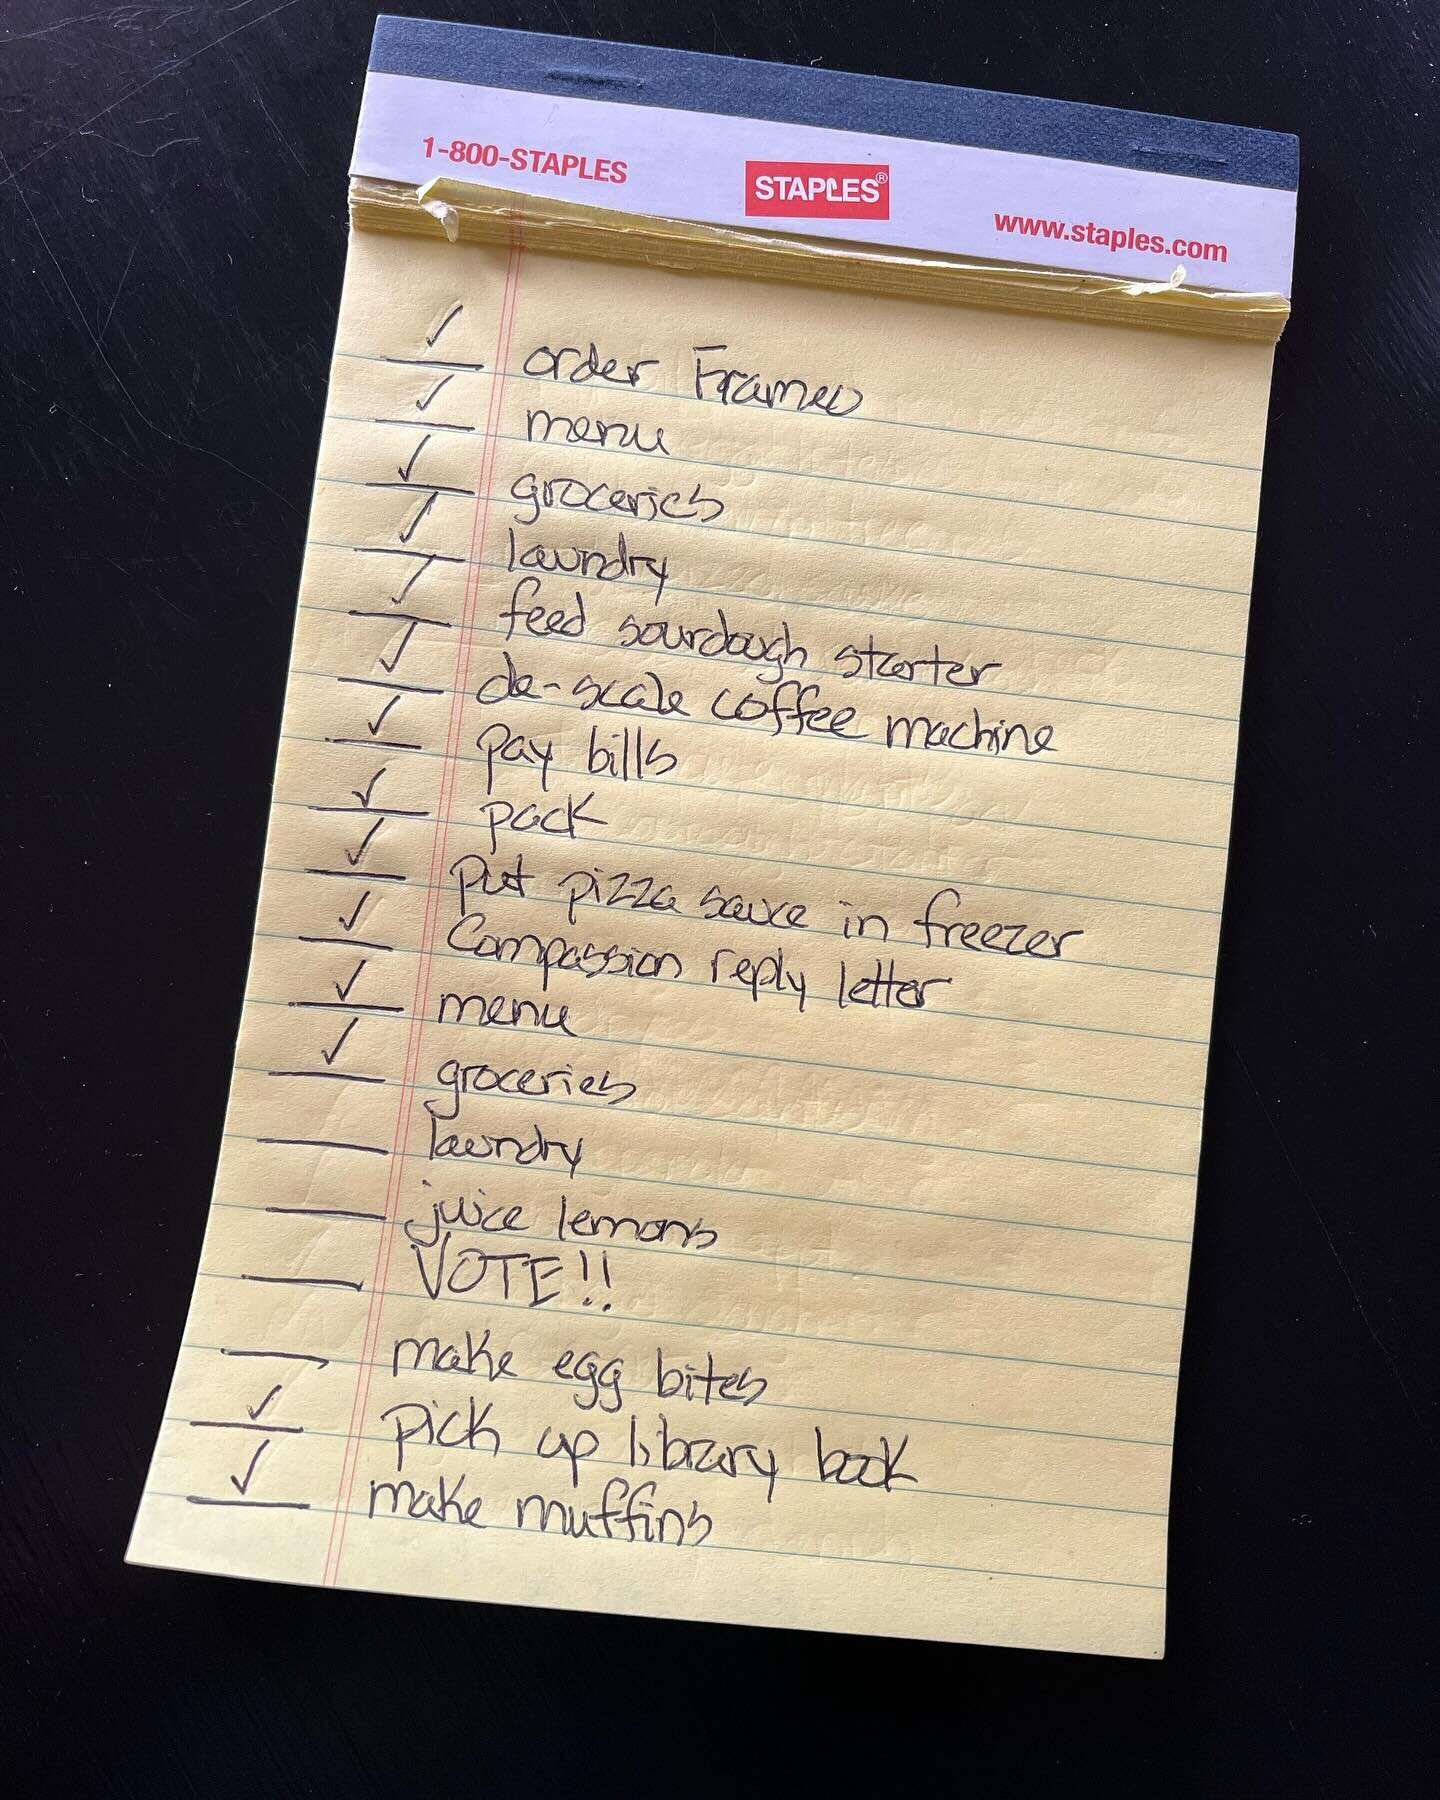 1-800-STAPLES
STAPLES®
www.staples.com
✓ order Frames
✓ menu
✓ groceries
✓ laundry
✓ feed sourdough starter
✓ de-scale coffee machine
✓ pay bills
✓ pack
✓ put pizza sauce in freezer
✓ Compassion reply letter
✓ menu
✓ groceries
laundry
juice lemons
VOTE!!
make egg bites
✓ pick up library book
✓ make muffins